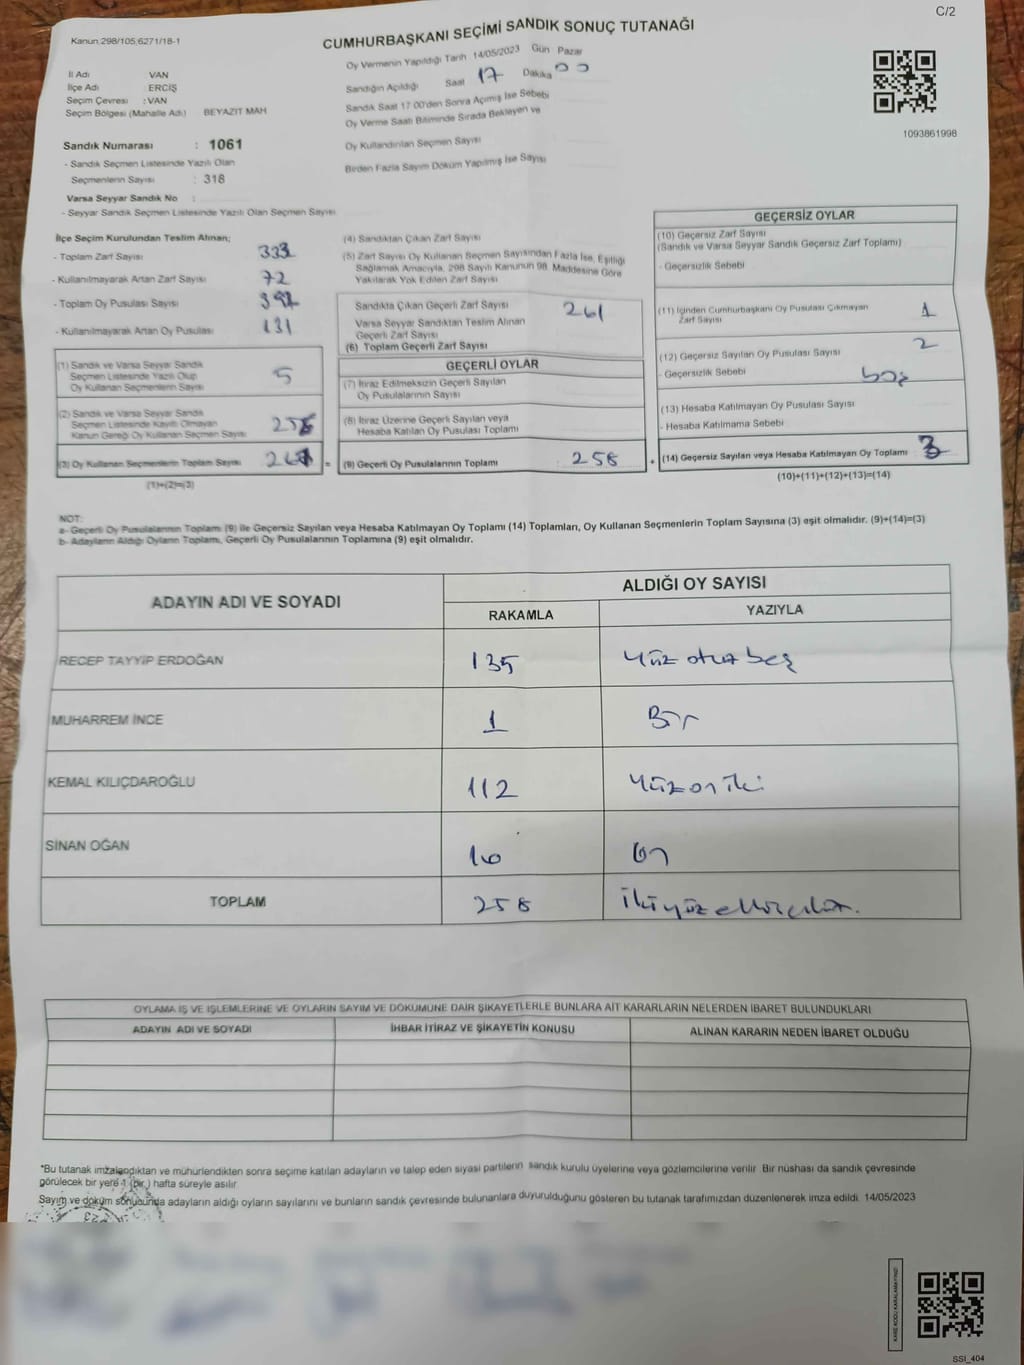 C/2
Kanun;298/105;6271/18-1
CUMHURBAŞKANI SEÇİMİ SANDIK SONUÇ TUTANAĞI
İl Adı VAN
İlçe Adı ERCİŞ
Seçim Çevresi : VAN
Seçim Bölgesi (Mahalle Adı) BEYAZIT MAH
Sandık Numarası : 1061
- Sandık Seçmen Listesinde Yazılı Olan
Seçmenlerin Sayısı : 318
Varsa Seyyar Sandık No :
- Seyyar Sandık Seçmen Listesinde Yazılı Olan Seçmen Sayısı
Oy Vermenin Yapıldığı Tarih 14/05/2023 Gün Pazar
Sandığın Açıldığı Saat 17 Dakika 00
Sandık Saat 17:00'den Sonra Açımış İse Sebebi
Oy Verme Saati Bitiminde Sırada Bekleyen ve
Oy Kullandırılan Seçmen Sayısı
Birden Fazla Sayım Döküm Yapılmış İse Sayısı
1093861998
İlçe Seçim Kurulundan Teslim Alınan;
- Toplam Zarf Sayısı 333
- Kullanılmayarak Artan Zarf Sayısı 72
- Toplam Oy Pusulası Sayısı
- Kullanılmayarak Artan Oy Pusulası 131
(1) Sandık ve Varsa Seyyar Sandık
Seçmen Listesinde Yazılı Olup
Oy Kullanan Seçmenlerin Sayısı 5
(2) Sandık ve Varsa Seyyar Sandık
Seçmen Listesinde Kayıtlı Olmayan
Kanun Gereği Oy Kullanan Seçmen Sayısı 256
(3) Oy Kullanan Seçmenlerin Toplam Sayısı 261 =
(1)+(2)=(3)
(4) Sandıktan Çıkan Zarf Sayısı
(5) Zarf Sayısı Oy Kullanan Seçmen Sayısından Fazla İse, Eşitliği
Sağlamak Amacıyla, 298 Sayılı Kanunun 98. Maddesine Göre
Yakılarak Yok Edilen Zarf Sayısı
Sandıkta Çıkan Geçerli Zarf Sayısı 261
Varsa Seyyar Sandıktan Teslim Alınan
Geçerli Zarf Sayısı
(6) Toplam Geçerli Zarf Sayısı
GEÇERLİ OYLAR
(7) İtiraz Edilmeksizin Geçerli Sayılan
Oy Pusulalarının Sayısı
(8) İtiraz Üzerine Geçerli Sayılan veya
Hesaba Katılan Oy Pusulası Toplamı
(9) Geçerli Oy Pusulalarının Toplamı 258 +
GEÇERSİZ OYLAR
(10) Geçersiz Zarf Sayısı
(Sandık ve Varsa Seyyar Sandık Geçersiz Zarf Toplamı)
- Geçersizlik Sebebi
(11) İçinden Cumhurbaşkanı Oy Pusulası Çıkmayan
Zarf Sayısı 1
(12) Geçersiz Sayılan Oy Pusulası Sayısı 2
- Geçersizlik Sebebi boş
(13) Hesaba Katılmayan Oy Pusulası Sayısı
- Hesaba Katılmama Sebebi
(14) Geçersiz Sayılan veya Hesaba Katılmayan Oy Toplamı 3
(10)+(11)+(12)+(13)=(14)
NOT:
a- Geçerli Oy Pusulalarının Toplamı (9) ile Geçersiz Sayılan veya Hesaba Katılmayan Oy Toplamı (14) Toplamları, Oy Kullanan Seçmenlerin Toplam Sayısına (3) eşit olmalıdır. (9)+(14)=(3)
b- Adayların Aldığı Oyların Toplamı, Geçerli Oy Pusulalarının Toplamına (9) eşit olmalıdır.
ADAYIN ADI VE SOYADI ALDIĞI OY SAYISI
RAKAMLA YAZIYLA
RECEP TAYYİP ERDOĞAN 135 Yüz otuz beş
MUHARREM İNCE 1 Bir
KEMAL KILIÇDAROĞLU 112 Yüz on iki
SİNAN OĞAN 10 on
TOPLAM 258 iki yüz elli sekiz
OYLAMA İŞ VE İŞLEMLERİNE VE OYLARIN SAYIM VE DÖKÜMÜNE DAİR ŞİKAYETLERLE BUNLARA AİT KARARLARIN NELERDEN İBARET BULUNDUKLARI
ADAYIN ADI VE SOYADI İHBAR İTİRAZ VE ŞİKAYETİN KONUSU ALINAN KARARIN NEDEN İBARET OLDUĞU
*Bu tutanak imzalandıktan ve mühürlendikten sonra seçime katılan adayların ve talep eden siyasi partilerin sandık kurulu üyelerine veya gözlemcilerine verilir. Bir nüshası da sandık çevresinde
görülecek bir yere 1 (bir) hafta süreyle asılır.
Sayım ve döküm sonucunda adayların aldığı oyların sayılarını ve bunların sandık çevresinde bulunanlara duyurulduğunu gösteren bu tutanak tarafımızdan düzenlenerek imza edildi. 14/05/2023
KARE KODU KARALAMAYINIZ!
SSI_404